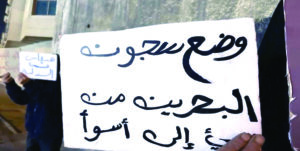 وضع سجون
البحرين من
سيئ إلى أسوأ